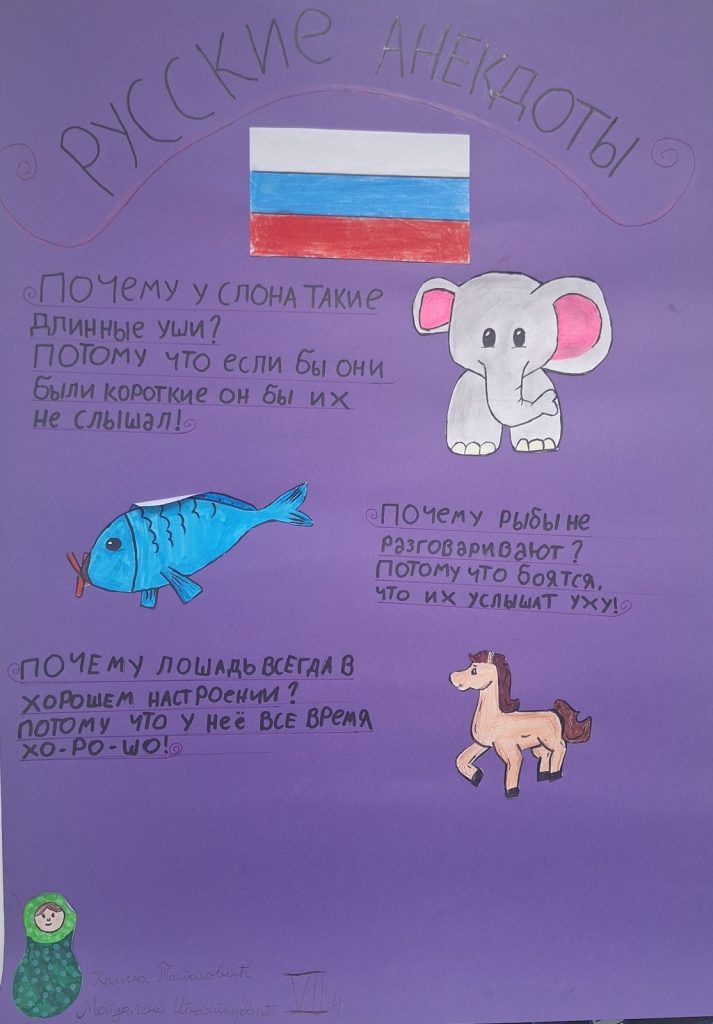 РУССКИЕ АНЕКДОТЫ
ПОЧЕМУ У СЛОНА ТАКИЕ
ДЛИННЫЕ УШИ?
ПОТОМУ ЧТО ЕСЛИ БЫ ОНИ
БЫЛИ КОРОТКИЕ ОН БЫ ИХ
НЕ СЛЫШАЛ!
ПОЧЕМУ РЫБЫ НЕ
РАЗГОВАРИВАЮТ?
ПОТОМУ ЧТО БОЯТСЯ,
ЧТО ИХ УСЛЫШАТ УХУ!
ПОЧЕМУ ЛОШАДЬ ВСЕГДА В
ХОРОШЕМ НАСТРОЕНИИ?
ПОТОМУ ЧТО У НЕЁ ВСЕ ВРЕМЯ
ХО-РО-ШО!
VII 4